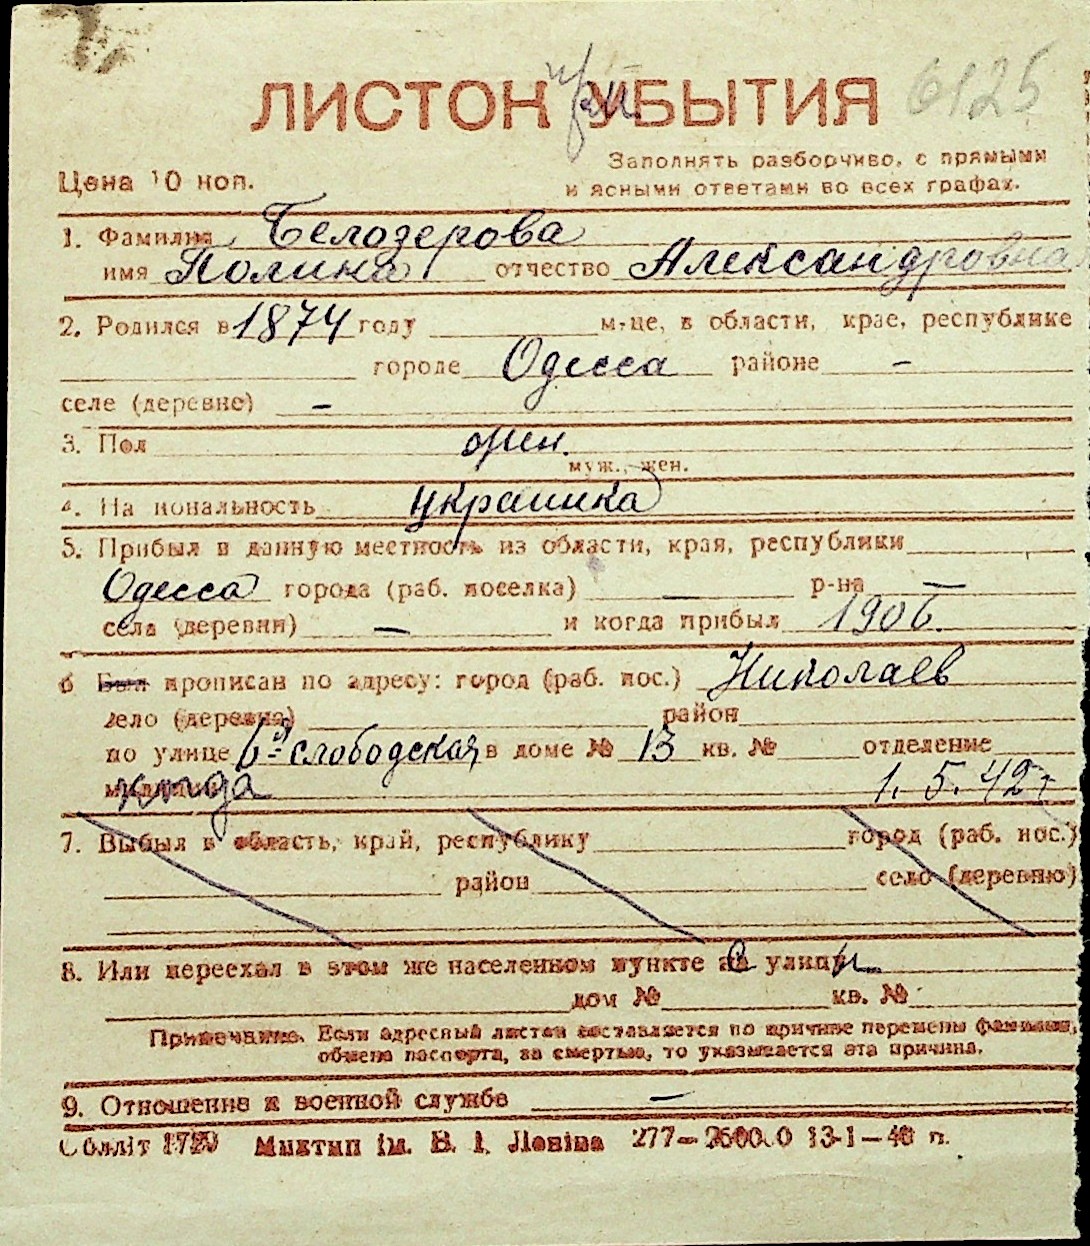 ЛИСТОН УБЫТИЯ 6125
приб
Заполнять разборчиво, с прямыми
Цена 10 коп. и ясными ответами во всех графах.
1. Фамилия Белозерова
имя Полина отчество Александровна
2. Родился в 1874 году м-це, в области, крае, республике
городе Одесса районе –
селе (деревне) –
3. Пол жен.
муж., жен.
4. Национальность украинка
5. Прибыл в данную местность из области, края, республики
Одесса города (раб. поселка) – р-на –
села (деревни) – и когда прибыл 1906 г.
6 Был прописан по адресу: город (раб. пос.) Николаев
село (деревня) район
по улице 6-я слободская в доме № 13 кв. № отделение
милиции когда 1. 5. 42 г
7. Выбыл в область, край, республику город (раб. пос.)
район село (деревню)
8. Или переехал в этом же населенном пункте на улицу
дом № кв. №
Примечание. Если адресный листок составляется по причине перемены фамилии,
обмена паспорта, за смертью, то указывается эта причина.
9. Отношение к военной службе –
Обліт 1729 Миктип ім. В. І. Леніна 277— 13-1—40 п.